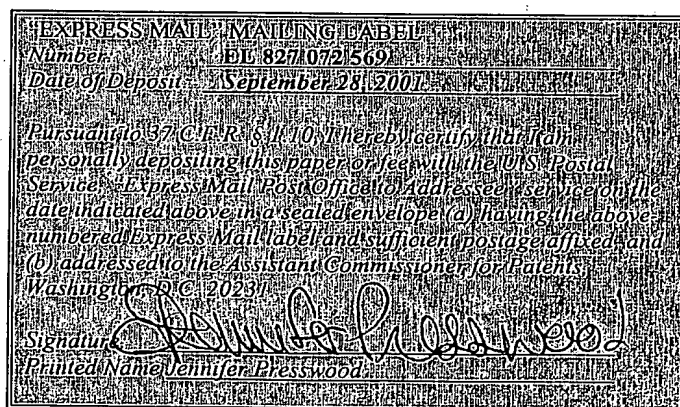 "EXPRESS MAIL" MAILING LABEL
Number: EL 827 072 569
Date of Deposit: September 28, 2001
Pursuant to 37 C.F.R. § 1.10, I hereby certify that I am
personally depositing this paper or fee with the U.S. Postal
Service, "Express Mail Post Office to Addressee" service on the
date indicated above in a sealed envelope (a) having the above-
numbered Express Mail label and sufficient postage affixed, and
(b) addressed to the Assistant Commissioner for Patents,
Washington, D.C. 20231.
Signature Jennifer Presswood
Printed Name Jennifer Presswood